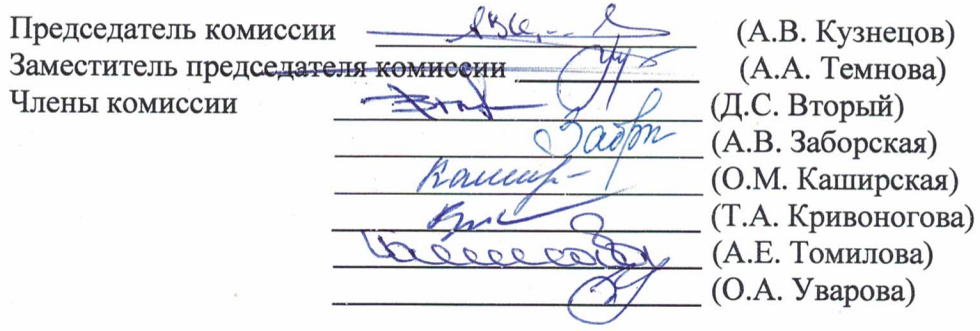 Председатель комиссии (А.В. Кузнецов)
Заместитель председателя комиссии (А.А. Темнова)
Члены комиссии (Д.С. Вторый)
(А.В. Заборская)
(О.М. Каширская)
(Т.А. Кривоногова)
(А.Е. Томилова)
(О.А. Уварова)